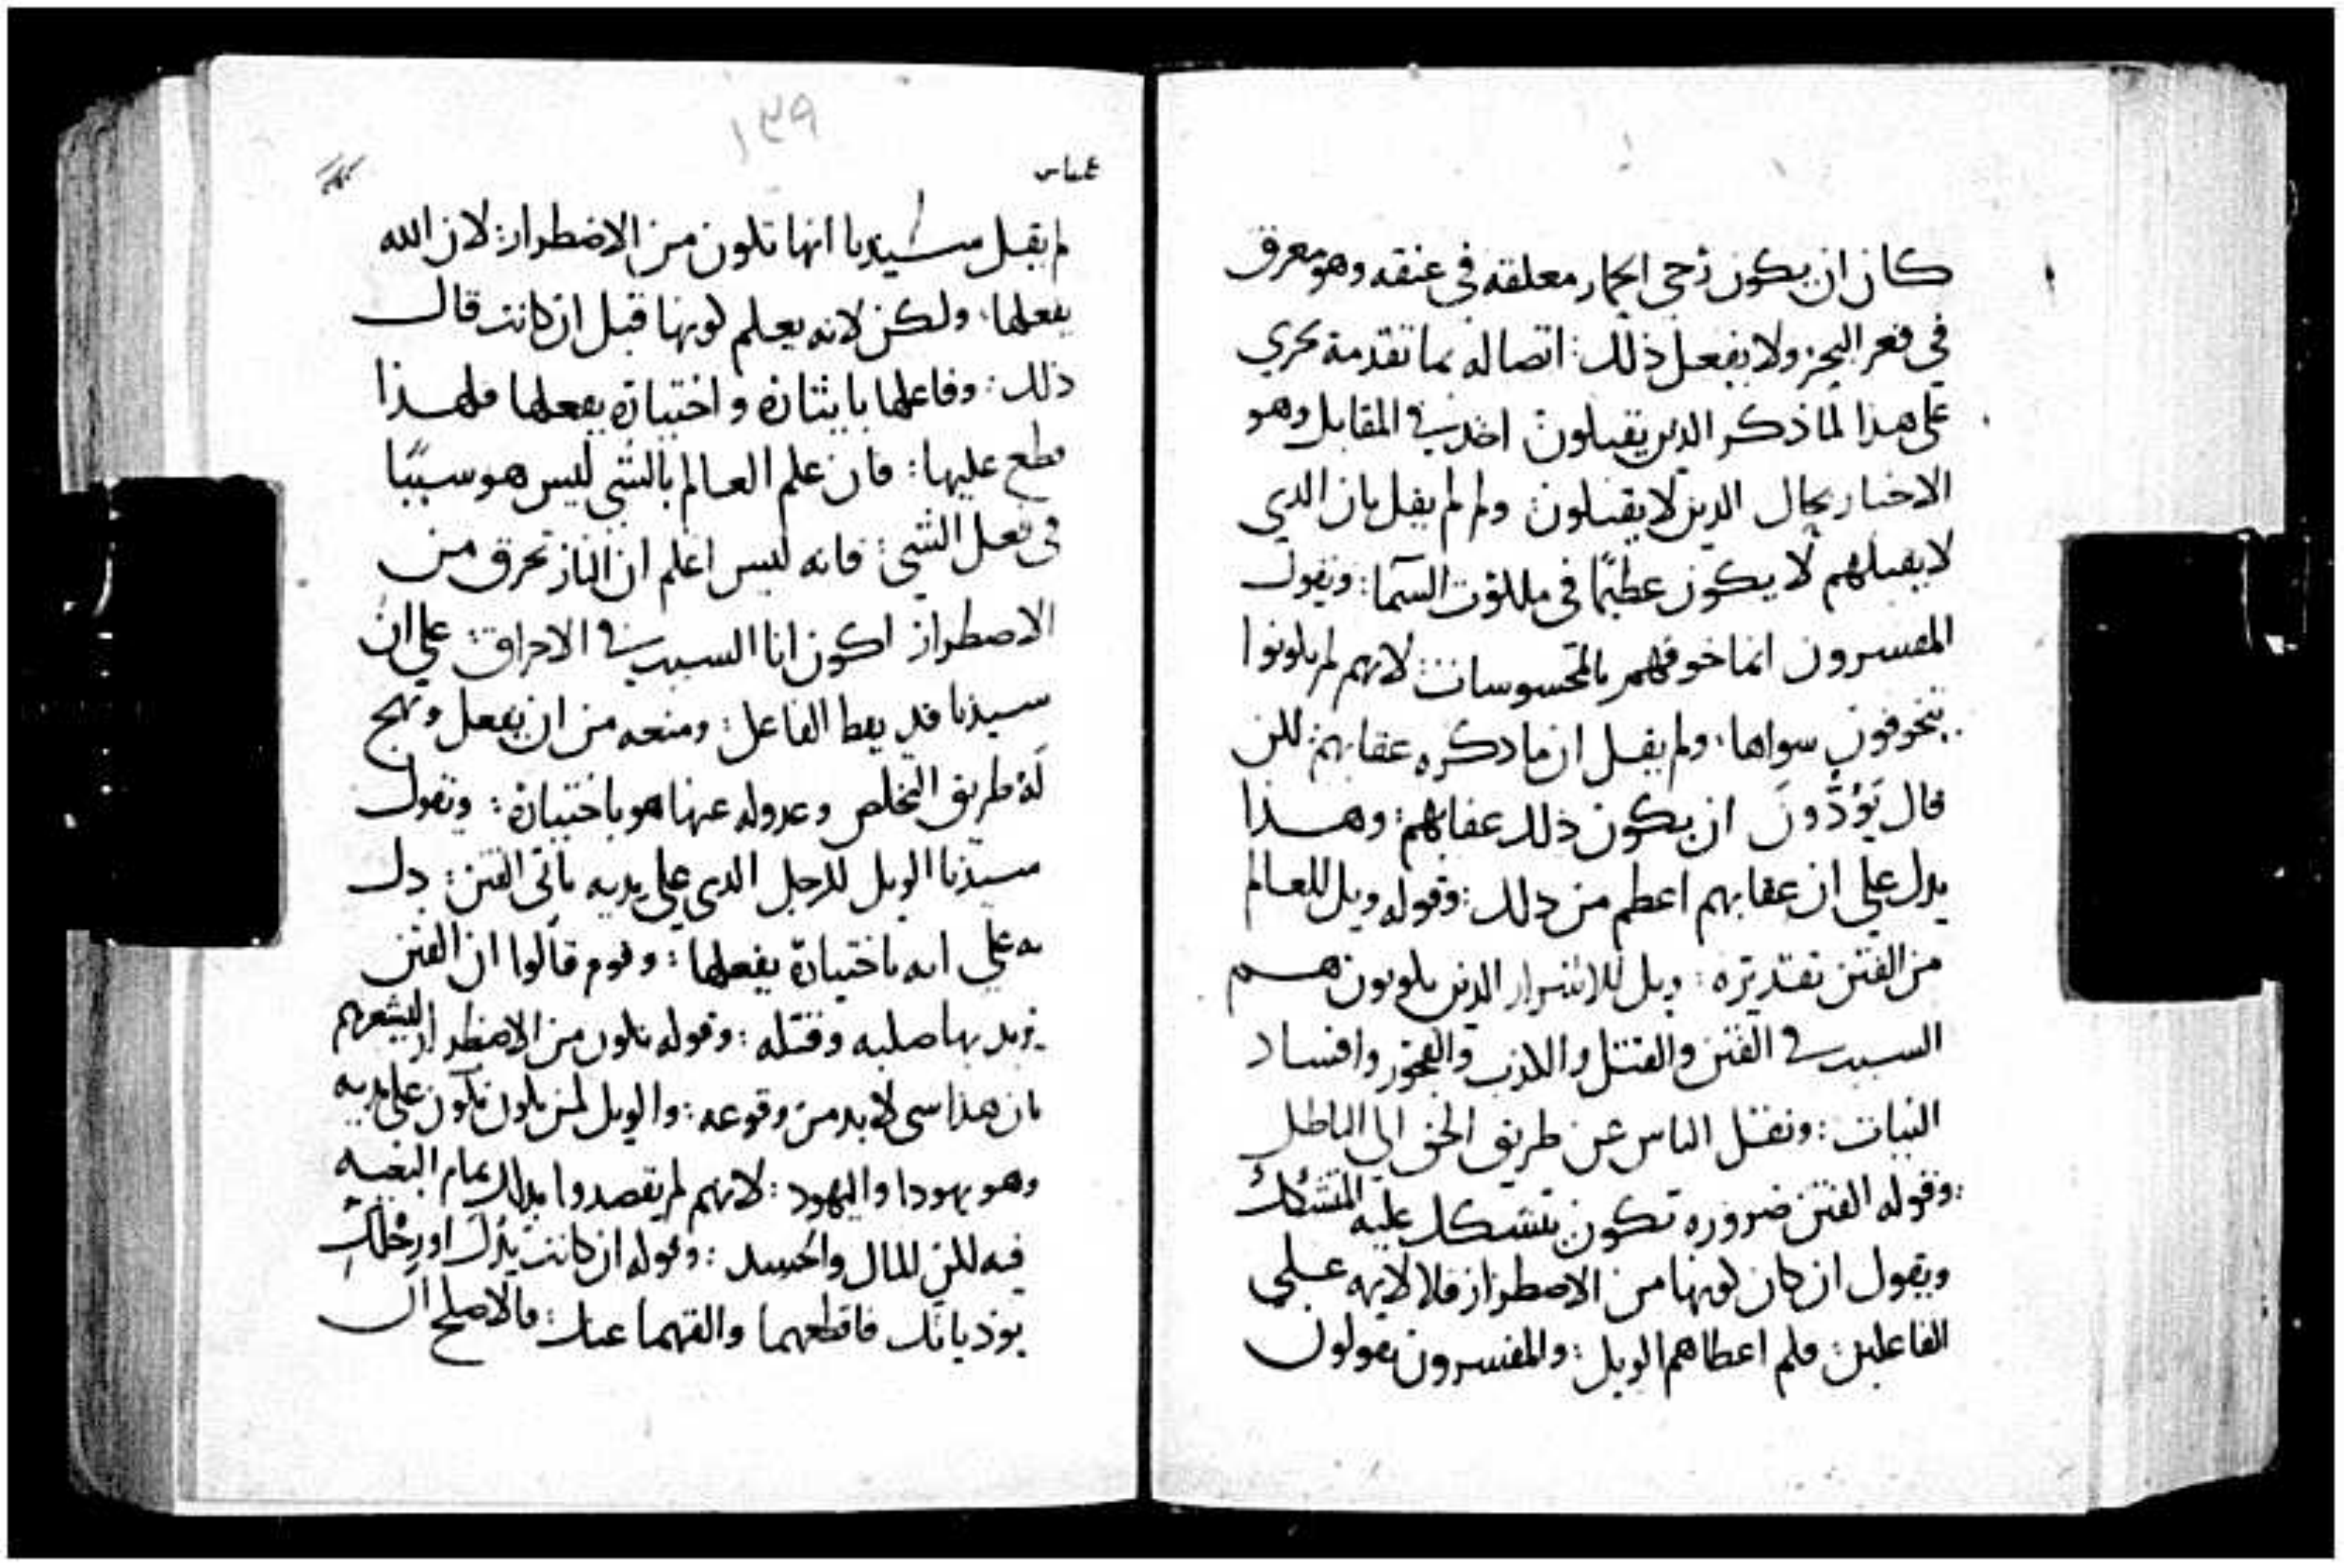 كان ان يكون رحى الحمار معلقه في عنقه وهو معرق
في قعر البحر ولا يفعل ذلك : اتصاله بما تقدمة يجري
على هذا لما ذكر الدين يقبلون اخد في المقابل وهو
الاخبار بحال الدين لا يقبلون ولم لم يقل بان الدي
لا يقبلهم لا يكون عظيمًا في ملكوت السمآ : ويقول
المفسرون انما خوفهم بالمحسوسات : لانهم لم يكونوا
يتخوفون سواها . ولم يقل ان ما دكره عقابهم : لكن
قال يَوَدُّونَ ان يكون ذلك عقابهم : وهذا
يدل على ان عقابهم اعظم من دلك : وقوله ويل للعالم
من الفتن تقديره : ويل للاشرار الدين يكونون هم
السبب في الفتن والقتل والكذب والفجور وافساد
النيات : ونقل الناس عن طريق الحق الى الباطل
: وقوله الفتن ضروره تكون يتشكك عليه المتشكك
ويقول ان كان كونها من الاضطرار فلا لايمه على
الفاعلين : فلم اعطاهم الويل : والمفسرون يقولون
١٣٩
عباس
لم يقل سيدنا انها تكون من الاضطرار : لان الله
يفعلها . ولكن لانه يعلم كونها قبل ان كانت قال
ذلك : وفاعلها بايثاره واختياره يفعلها فلهذا
قطع عليها : فان علم العالم بالشي ليس هو سببًا
في فعل الشي : فانه ليس اعلم ان النار تحرق من
الاضطرار اكون انا السبب في الاحراق : على ان
سيدنا قد يعط الفاعل : ومنعه من ان يفعل ونهج
لَهُ طريق التخلص وعدوله عنها هو باختياره : وبقول
سيدنا الويل للرجل الدي على يديه تاتى الفتن : دل
به على انه باختياره يفعلها : وقوم قالوا ان الفتن
يريد بها صلبه وقتله : وقوله تكون من الاضطرار ليشعرهم
بان هدا شي لا بد من وقوعه : والويل لمن يكون تكون على يديه
وهو يهودا واليهود : لانهم لم يقصدوا بدلك تمام البغيه
فيه لكن للمال والحسد : وقوله ان كانت يدك او رجلك
يوذيانك فاقطعهما والقهما عنك : فالاصلح لك